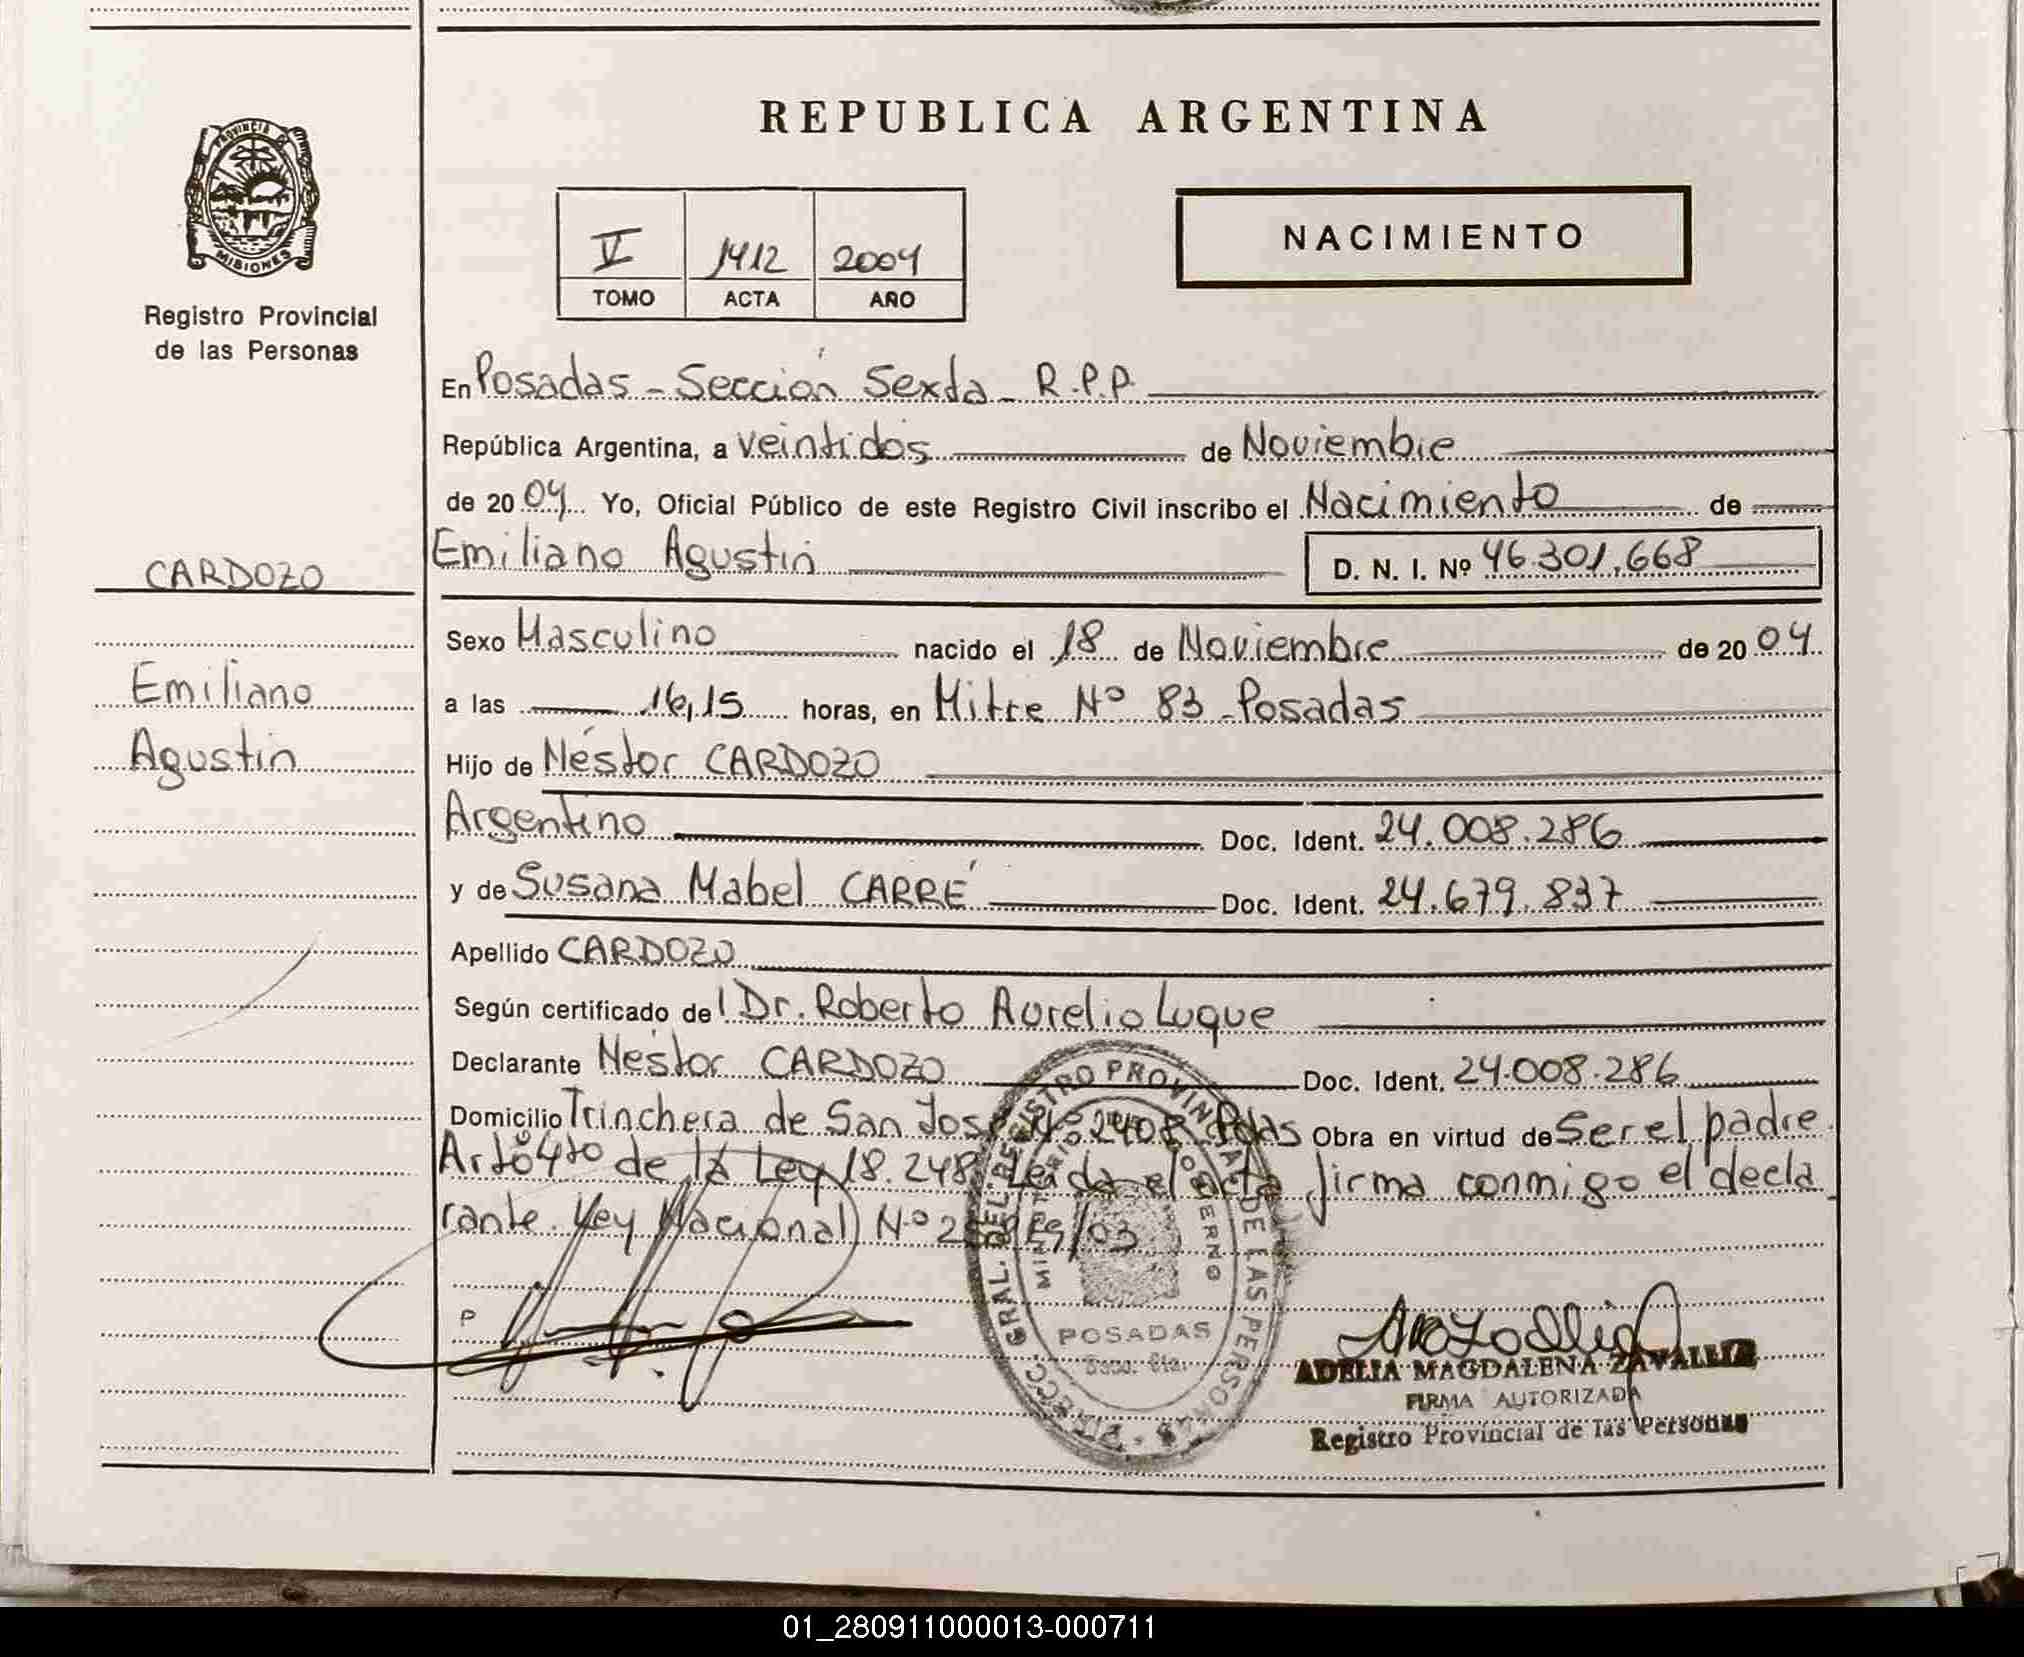 PROVINCIA DE
MISIONES
Registro Provincial
de las Personas
REPUBLICA ARGENTINA
NACIMIENTO
V 1412 2004
TOMO ACTA AÑO
En Posadas - Sección Sexta - R.P.P.
República Argentina, a veintidós de Noviembre
de 2004 Yo, Oficial Público de este Registro Civil inscribo el Nacimiento de
Emiliano Agustín D. N. I. Nº 46.301.668
CARDOZO
Emiliano
Agustín
Sexo Masculino nacido el 18 de Noviembre de 2004
a las 16,15 horas, en Mitre Nº 83 - Posadas
Hijo de Néstor CARDOZO
Argentino Doc. Ident. 24.008.286
y de Susana Mabel CARRÉ Doc. Ident. 24.679.837
Apellido CARDOZO
Según certificado del Dr. Roberto Aurelio Luque
Declarante Néstor CARDOZO Doc. Ident. 24.008.286
Domicilio Trinchera de San José Nº 2408 Pdas Obra en virtud de Ser el padre.
Artº 4to de la Ley 18.248 Leída el acta firma conmigo el decla
rante. Ley Nacional Nº
P
DIRECC. GRAL. DEL REGISTRO PROVINCIAL DE LAS PERSONAS
GOBIERNO
POSADAS
Secc. 6ta.
ADELIA MAGDALENA ZAVALLIZ
FIRMA AUTORIZADA
Registro Provincial de las Personas
01_280911000013-000711